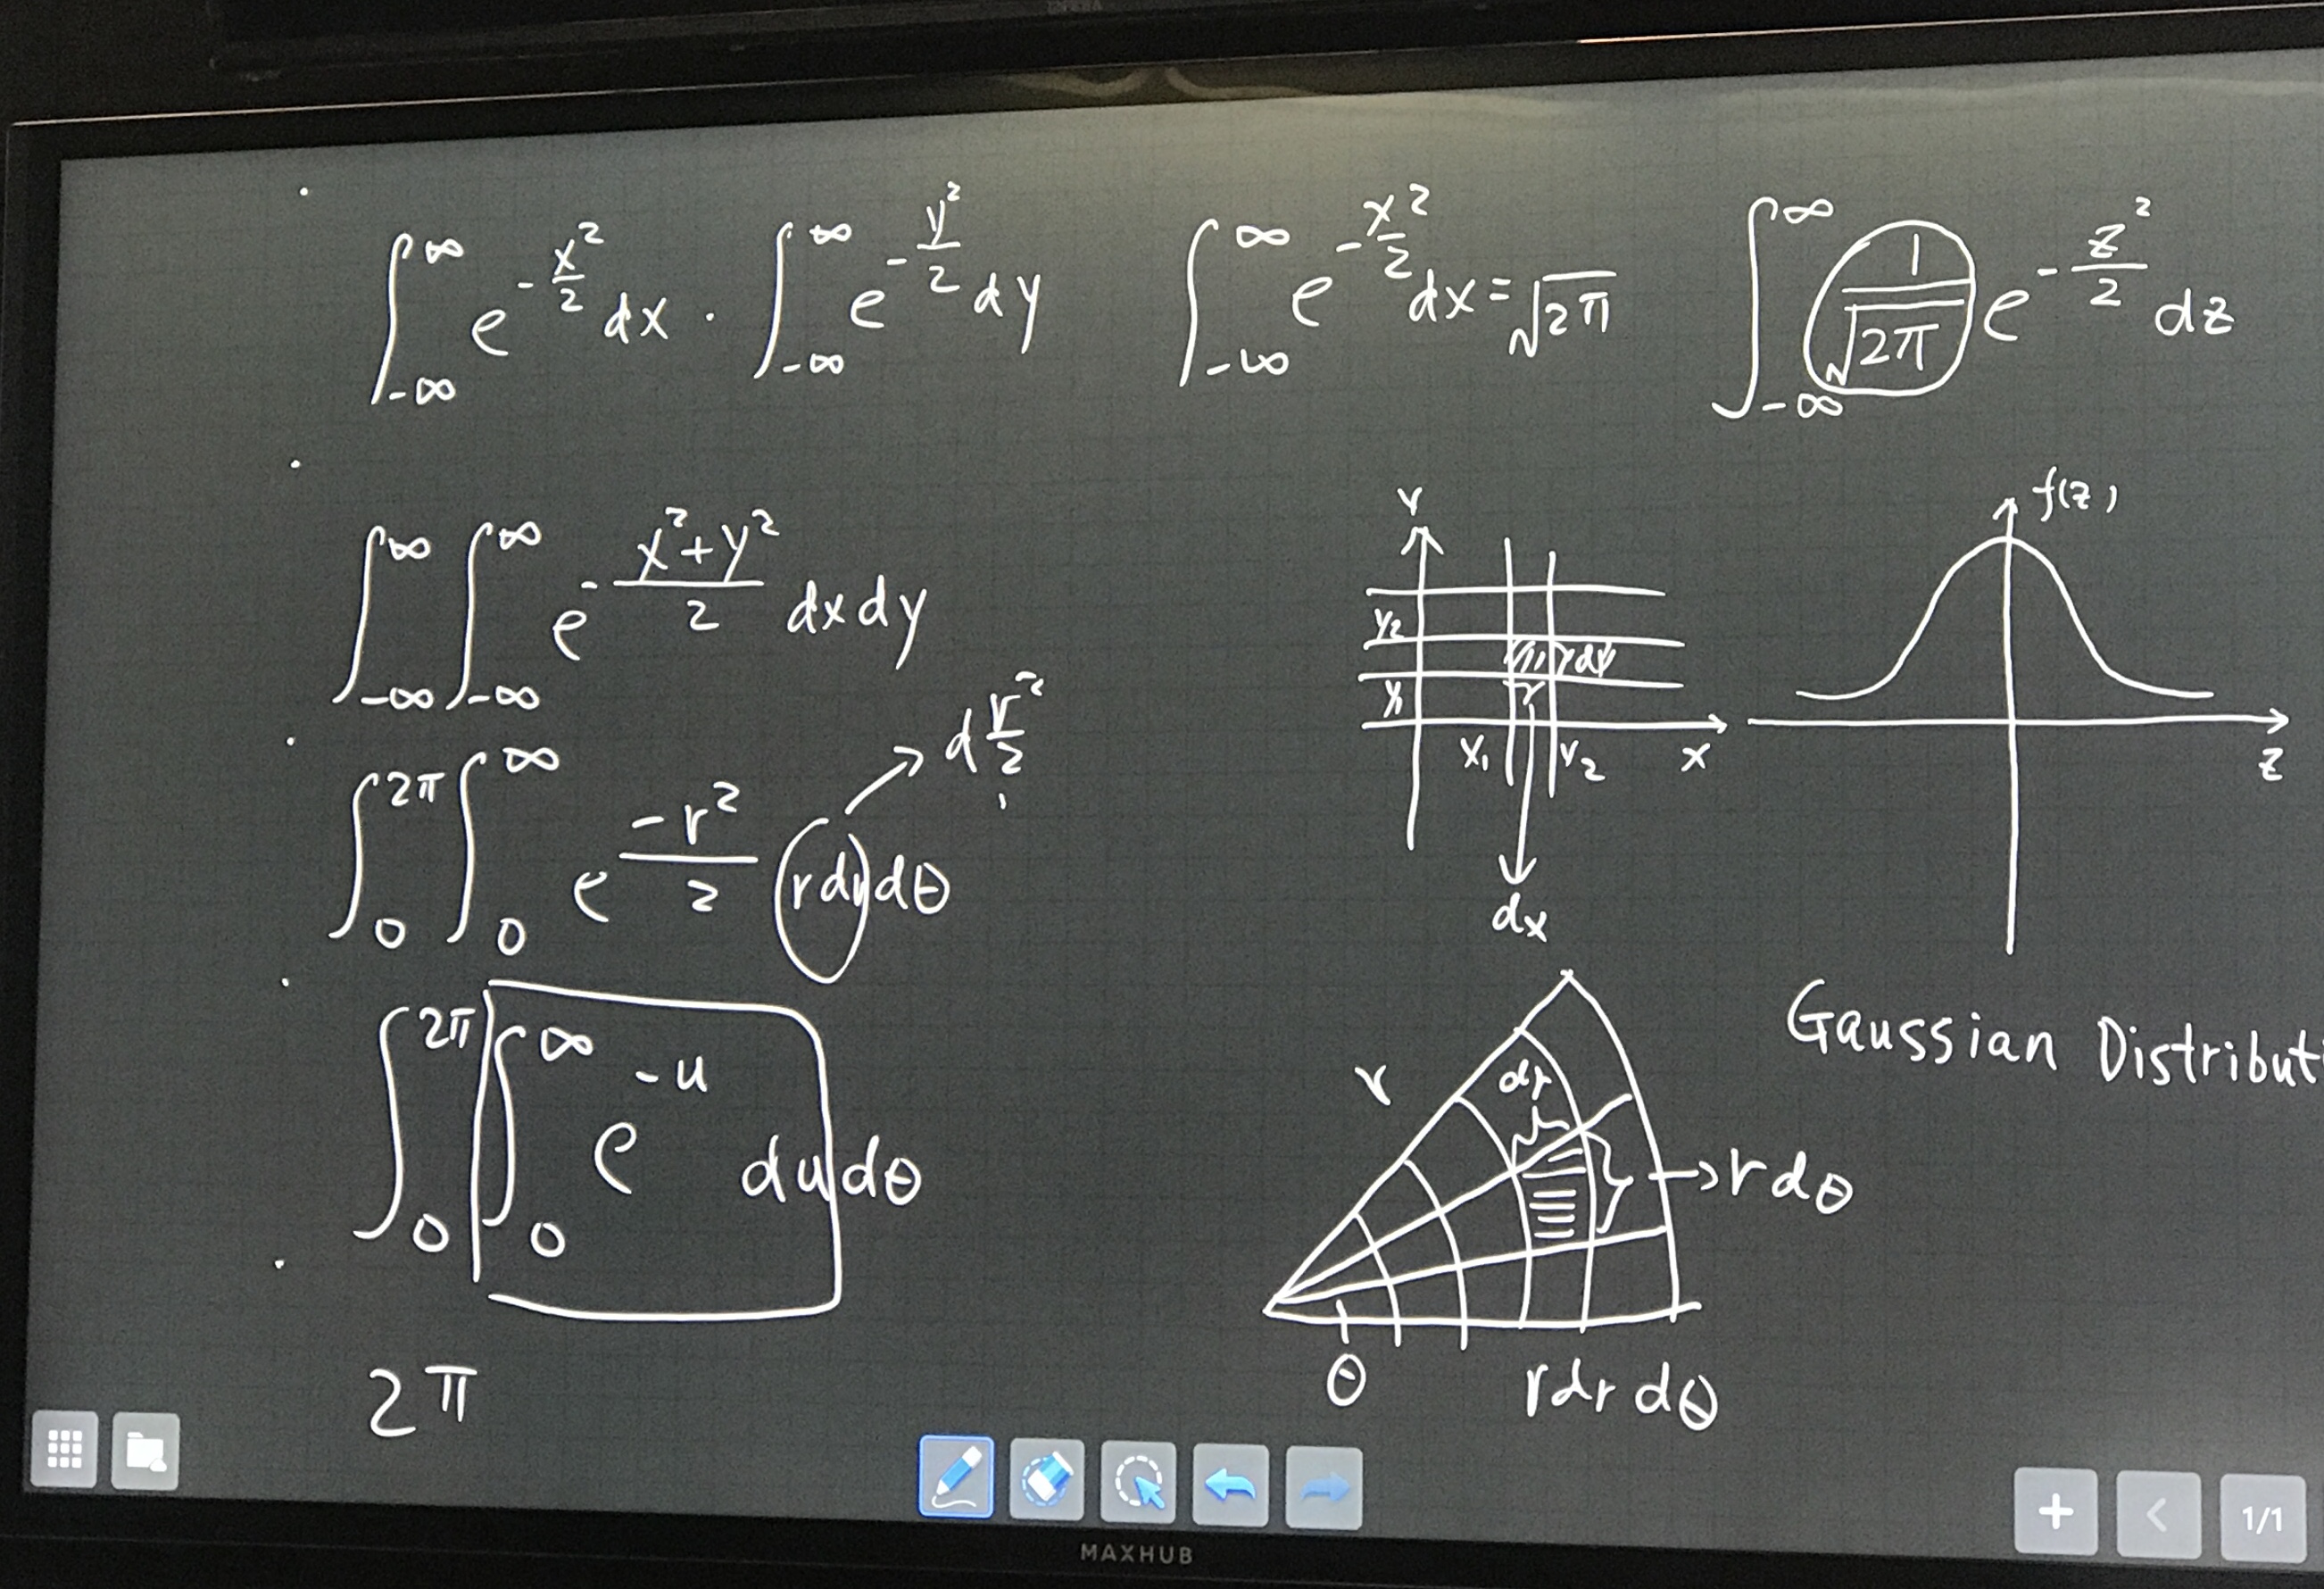 ∫_{-∞}^{∞} e^{-x²/2} dx · ∫_{-∞}^{∞} e^{-y²/2} dy
∫_{-∞}^{∞} e^{-x²/2} dx = √2π
∫_{-∞}^{∞} 1/√2π e^{-z²/2} dz
∫_{-∞}^{∞} ∫_{-∞}^{∞} e^{-(x²+y²)/2} dxdy
∫_0^{2π} ∫_0^{∞} e^{-r²/2} rdr dθ
→ d r²/2
∫_0^{2π} ∫_0^{∞} e^{-u} du dθ
2π
y
y₂
dy
y₁
x₁
x₂
x
dx
f(z)
z
Gaussian Distribut
r
dr
→ r dθ
θ
r dr dθ
1/1
MAXHUB